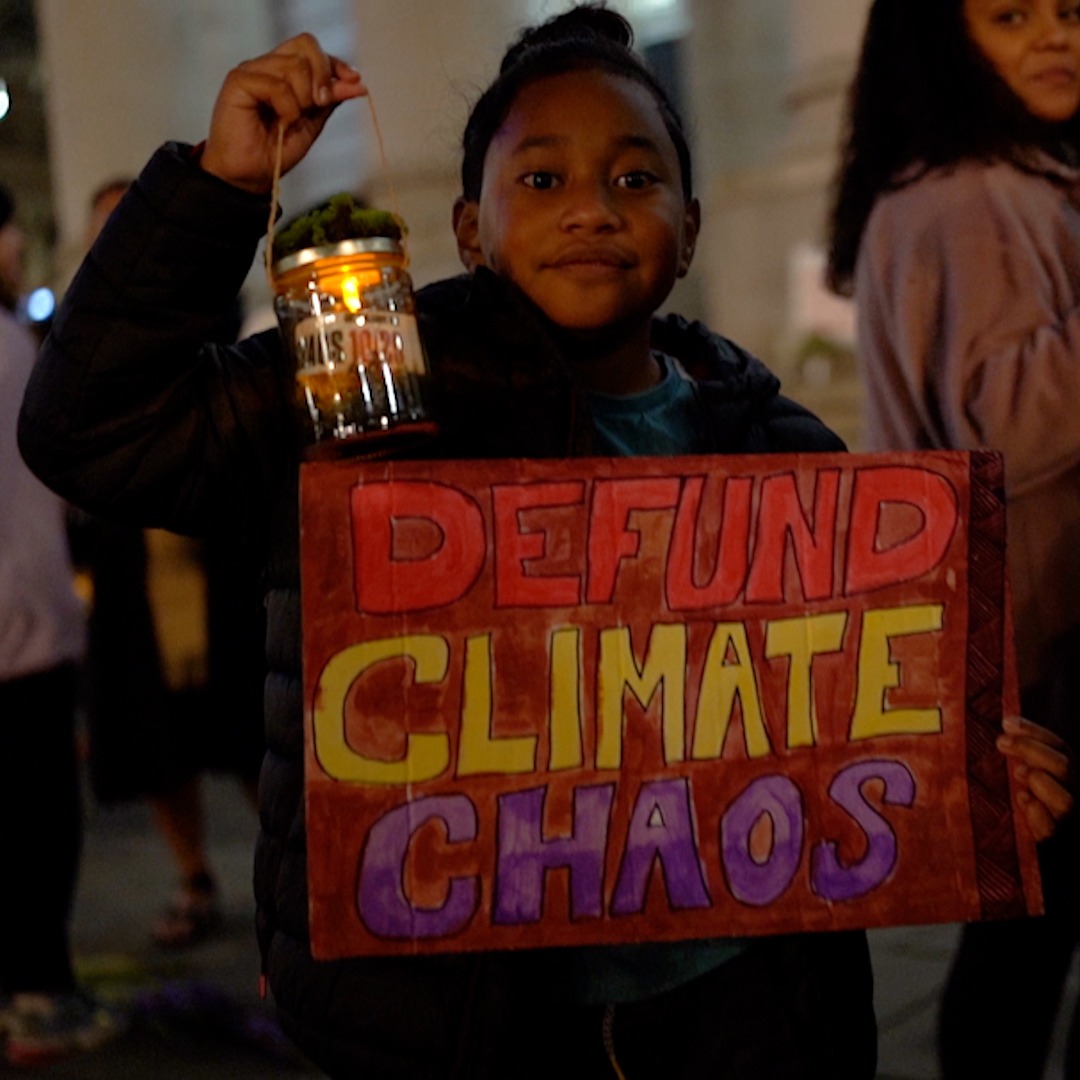 DEFUND
CLIMATE
CHAOS